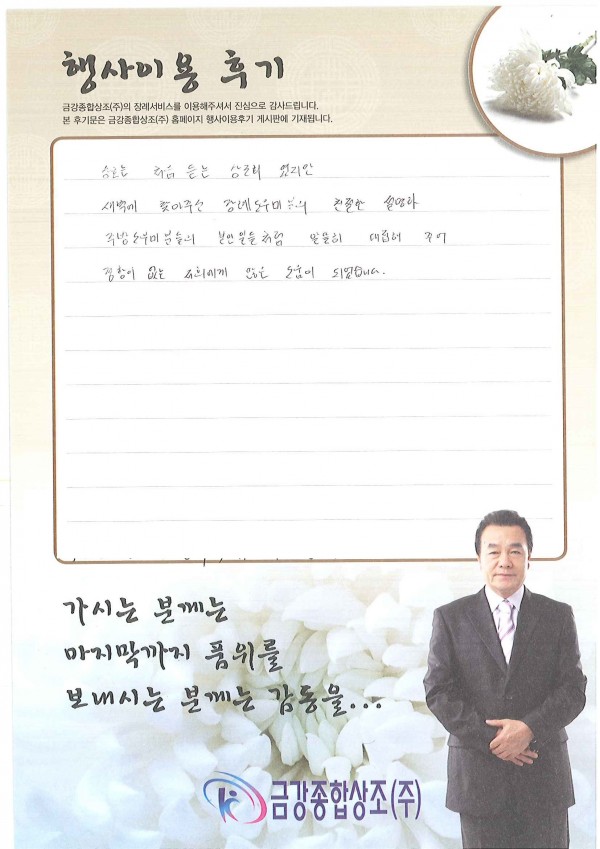 행사이용 후기
금강종합상조(주)의 장례서비스를 이용해주셔서 진심으로 감사드립니다.
본 후기문은 금강종합상조(주) 홈페이지 행사이용후기 게시판에 기재됩니다.
처음 듣는 상조회 였지만
새벽에 찾아주신 장례도우미분의 친절한 설명과
주방도우미분들의 본인일들처럼 대접해 주어
경황이 없는 저희에게 많은 도움이 되었습니다.
가시는 분께는
마지막까지 품위를
보내시는 분께는 감동을...
금강종합상조(주)